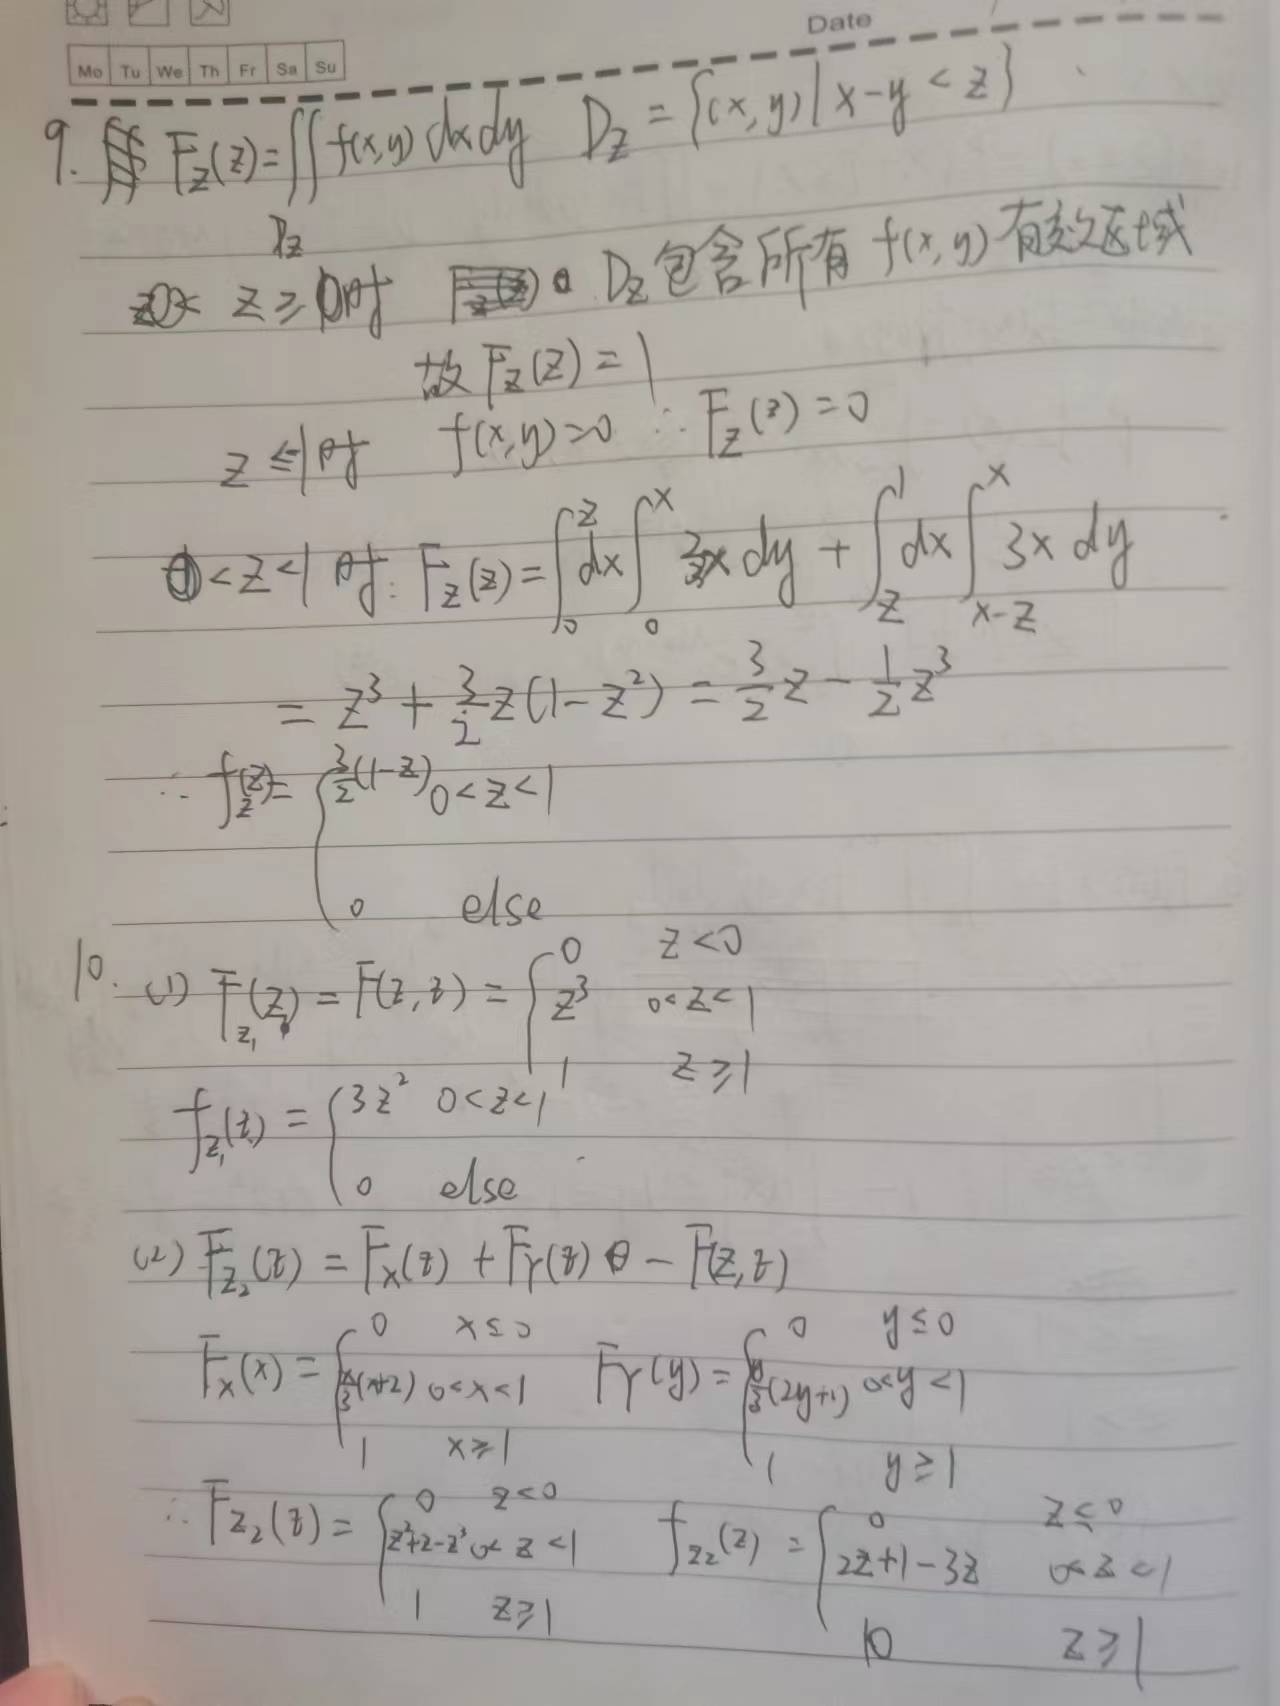 Date
Mo Tu We Th Fr Sa Su
9. F_Z(z)=∬ f(x,y) dxdy D_Z = {(x,y) | x-y < z}
D_Z
z ≥ 1时 D_Z包含所有 f(x,y) 有效区域
故 F_Z(z) = 1
z ≤ 时 f(x,y)=0 ∴ F_Z(z) = 0
0 < z < 1 时: F_Z(z) = ∫_0^z dx ∫_0^x 3x dy + ∫_z^1 dx ∫_{x-z}^x 3x dy
= z^3 + 3/2 z(1-z^2) = 3/2 z - 1/2 z^3
∴ f_Z(z) = { 3/2(1-z) 0<z<1
0 else
10. (1) F_{Z_1}(z) = F(z,z) = { 0 z<0
z^3 0<z<1
1 z≥1
f_{Z_1}(z) = { 3z^2 0<z<1
0 else
(2) F_{Z_2}(z) = F_X(z) + F_Y(z) - F(z,z)
F_X(x) = { 0 x≤0 F_Y(y) = { 0 y≤0
x/3(x+2) 0<x<1 y/3(2y+1) 0<y<1
1 x≥1 1 y≥1
∴ F_{Z_2}(z) = { 0 z<0 f_{Z_2}(z) = { 0 z≤0
z^2+z-z^3 0<z<1 2z+1-3z 0<z<1
1 z≥1 0 z≥1